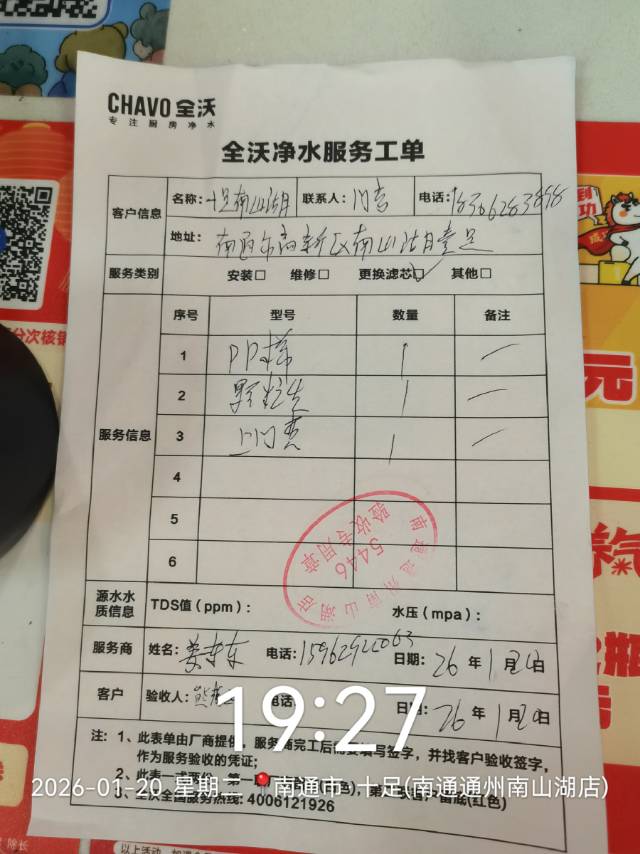 CHAVO 全沃
专注厨房净水
全沃净水服务工单
客户信息
名称: 十足南山湖 联系人: 门店 电话:
地址: 南通市高新区南山湖壹足
服务类别 安装□ 维修□ 更换滤芯☑ 其他□
服务信息
序号 型号 数量 备注
1 PP棉 1 一
2 颗粒炭 1 一
3 1 一
4
5
6
南通通州南山湖店
5446
验收专用章
源水水质信息 TDS值(ppm): 水压(mpa):
服务商 姓名: 电话: 日期: 26 年 1 月 20 日
客户 验收人: 电话 日期: 26 年 1 月 20
19:27
注: 1、此表单由厂商提供,服务商完工后需要填写签字,并找客户验收签字,
作为服务验收的凭证;
2、此表一式两份,第一 色),第 留底(红色)
3、全沃全国服务热线: 4006121926
2026-01-20 星期二 南通市·十足(南通通州南山湖店)
分次核销
成功
元
除长
以上活动,